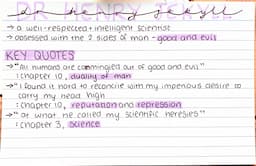 DR HENRY JEKYLL
dr henry jekyll
→ a well-respected + intelligent scientist
→ obsessed with the 2 sides of man - good and evil
KEY QUOTES
→ "All humans are commingled out of good and evil"
: chapter 10, duality of man
→ "I found it hard to reconcile with my imperious desire to
carry my head high
: chapter 10, reputation and repression
→ "at what he called my scientific heresies"
: chapter 3, science